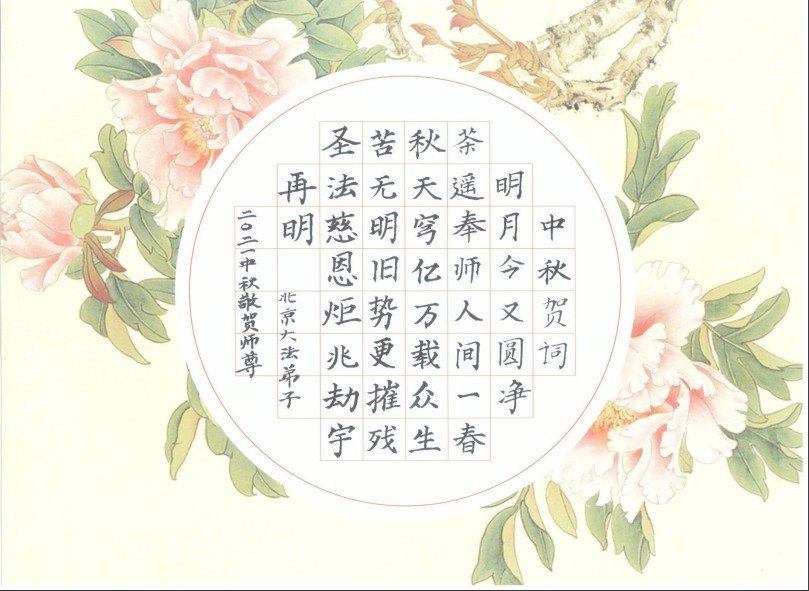 中秋贺词
明月今又圆净
茶遥奉师人间一春
秋天穹亿万载众生
苦无明旧势更摧残
圣法慈恩炬兆劫宇
再明
北京大法弟子
二〇二一中秋敬贺师尊